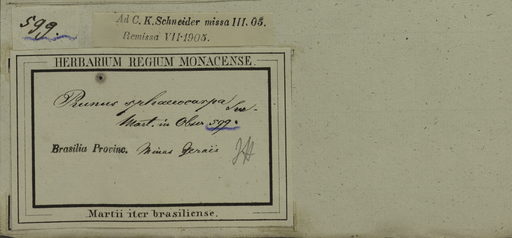 599.
Ad C. K. Schneider missa III. 05.
Remissa VII·1905.
HERBARIUM REGIUM MONACENSE.
Prunus sphaerocarpa Sw.
Mart. in Obser. 599.
Brasilia Provinc. Minas Geraës
Martii iter brasiliense.